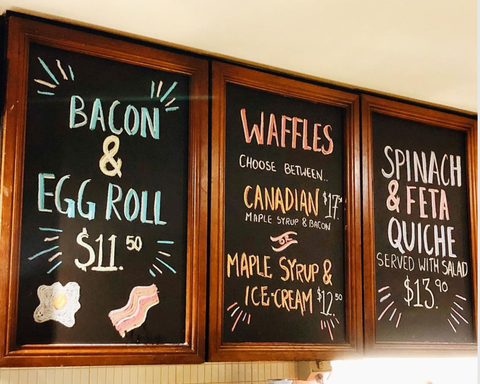 BACON
&
EGG ROLL
$11.50
WAFFLES
CHOOSE BETWEEN..
CANADIAN $17.
MAPLE SYRUP & BACON
MAPLE SYRUP &
ICE-CREAM $12.50
SPINACH
& FETA
QUICHE
SERVED WITH SALAD
$13.90